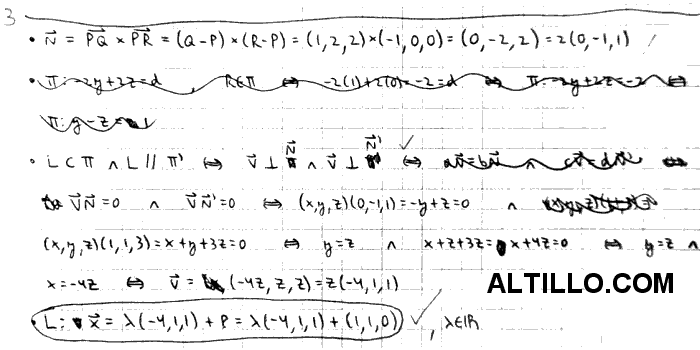 3
• N⃗ = PQ⃗ × PR⃗ = (Q-P)×(R-P) = (1,2,2)×(-1,0,0) = (0,-2,2) = 2(0,-1,1)
• π: -2y+2z=d , R∈π ⇔ -2(1)+2(0)=-2=d ⇔ π: -2y+2z=-2 ⇔
π: y-z=1
• L⊂π ∧ L//π' ⇔ v⃗ ⊥ N⃗ ∧ v⃗ ⊥ N⃗' ⇔
v⃗N⃗=0 ∧ v⃗N⃗'=0 ⇔ (x,y,z)(0,-1,1)=-y+z=0 ∧
(x,y,z)(1,1,3)=x+y+3z=0 ⇔ y=z ∧ x+z+3z= x+4z=0 ⇔ y=z ∧
x=-4z ⇔ v⃗ = (-4z,z,z)=z(-4,1,1)
ALTILLO.COM
• L: x⃗ = λ(-4,1,1) + P = λ(-4,1,1) + (1,1,0) , λ∈ℝ